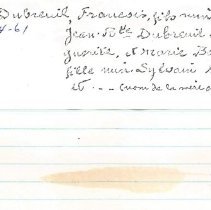 Dubreuil, Francois, fils min
4-61 Jean-Bte Dubreuil
et Marie
fille min. Sylvain
et . . . (nom de la mère